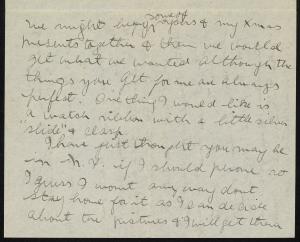 some of
We might buy yours & my Xmas
presents together & then we would
get what we wanted although the
things you get for me are always
perfect. One thing I would like is
a watch ribbon with a little silver
"slide" & clasp.
I have just thought you may be
in N.Y. if I should phone so
I guess I won't any way don't
stay home for it as I can decide
about the pictures & I will get them